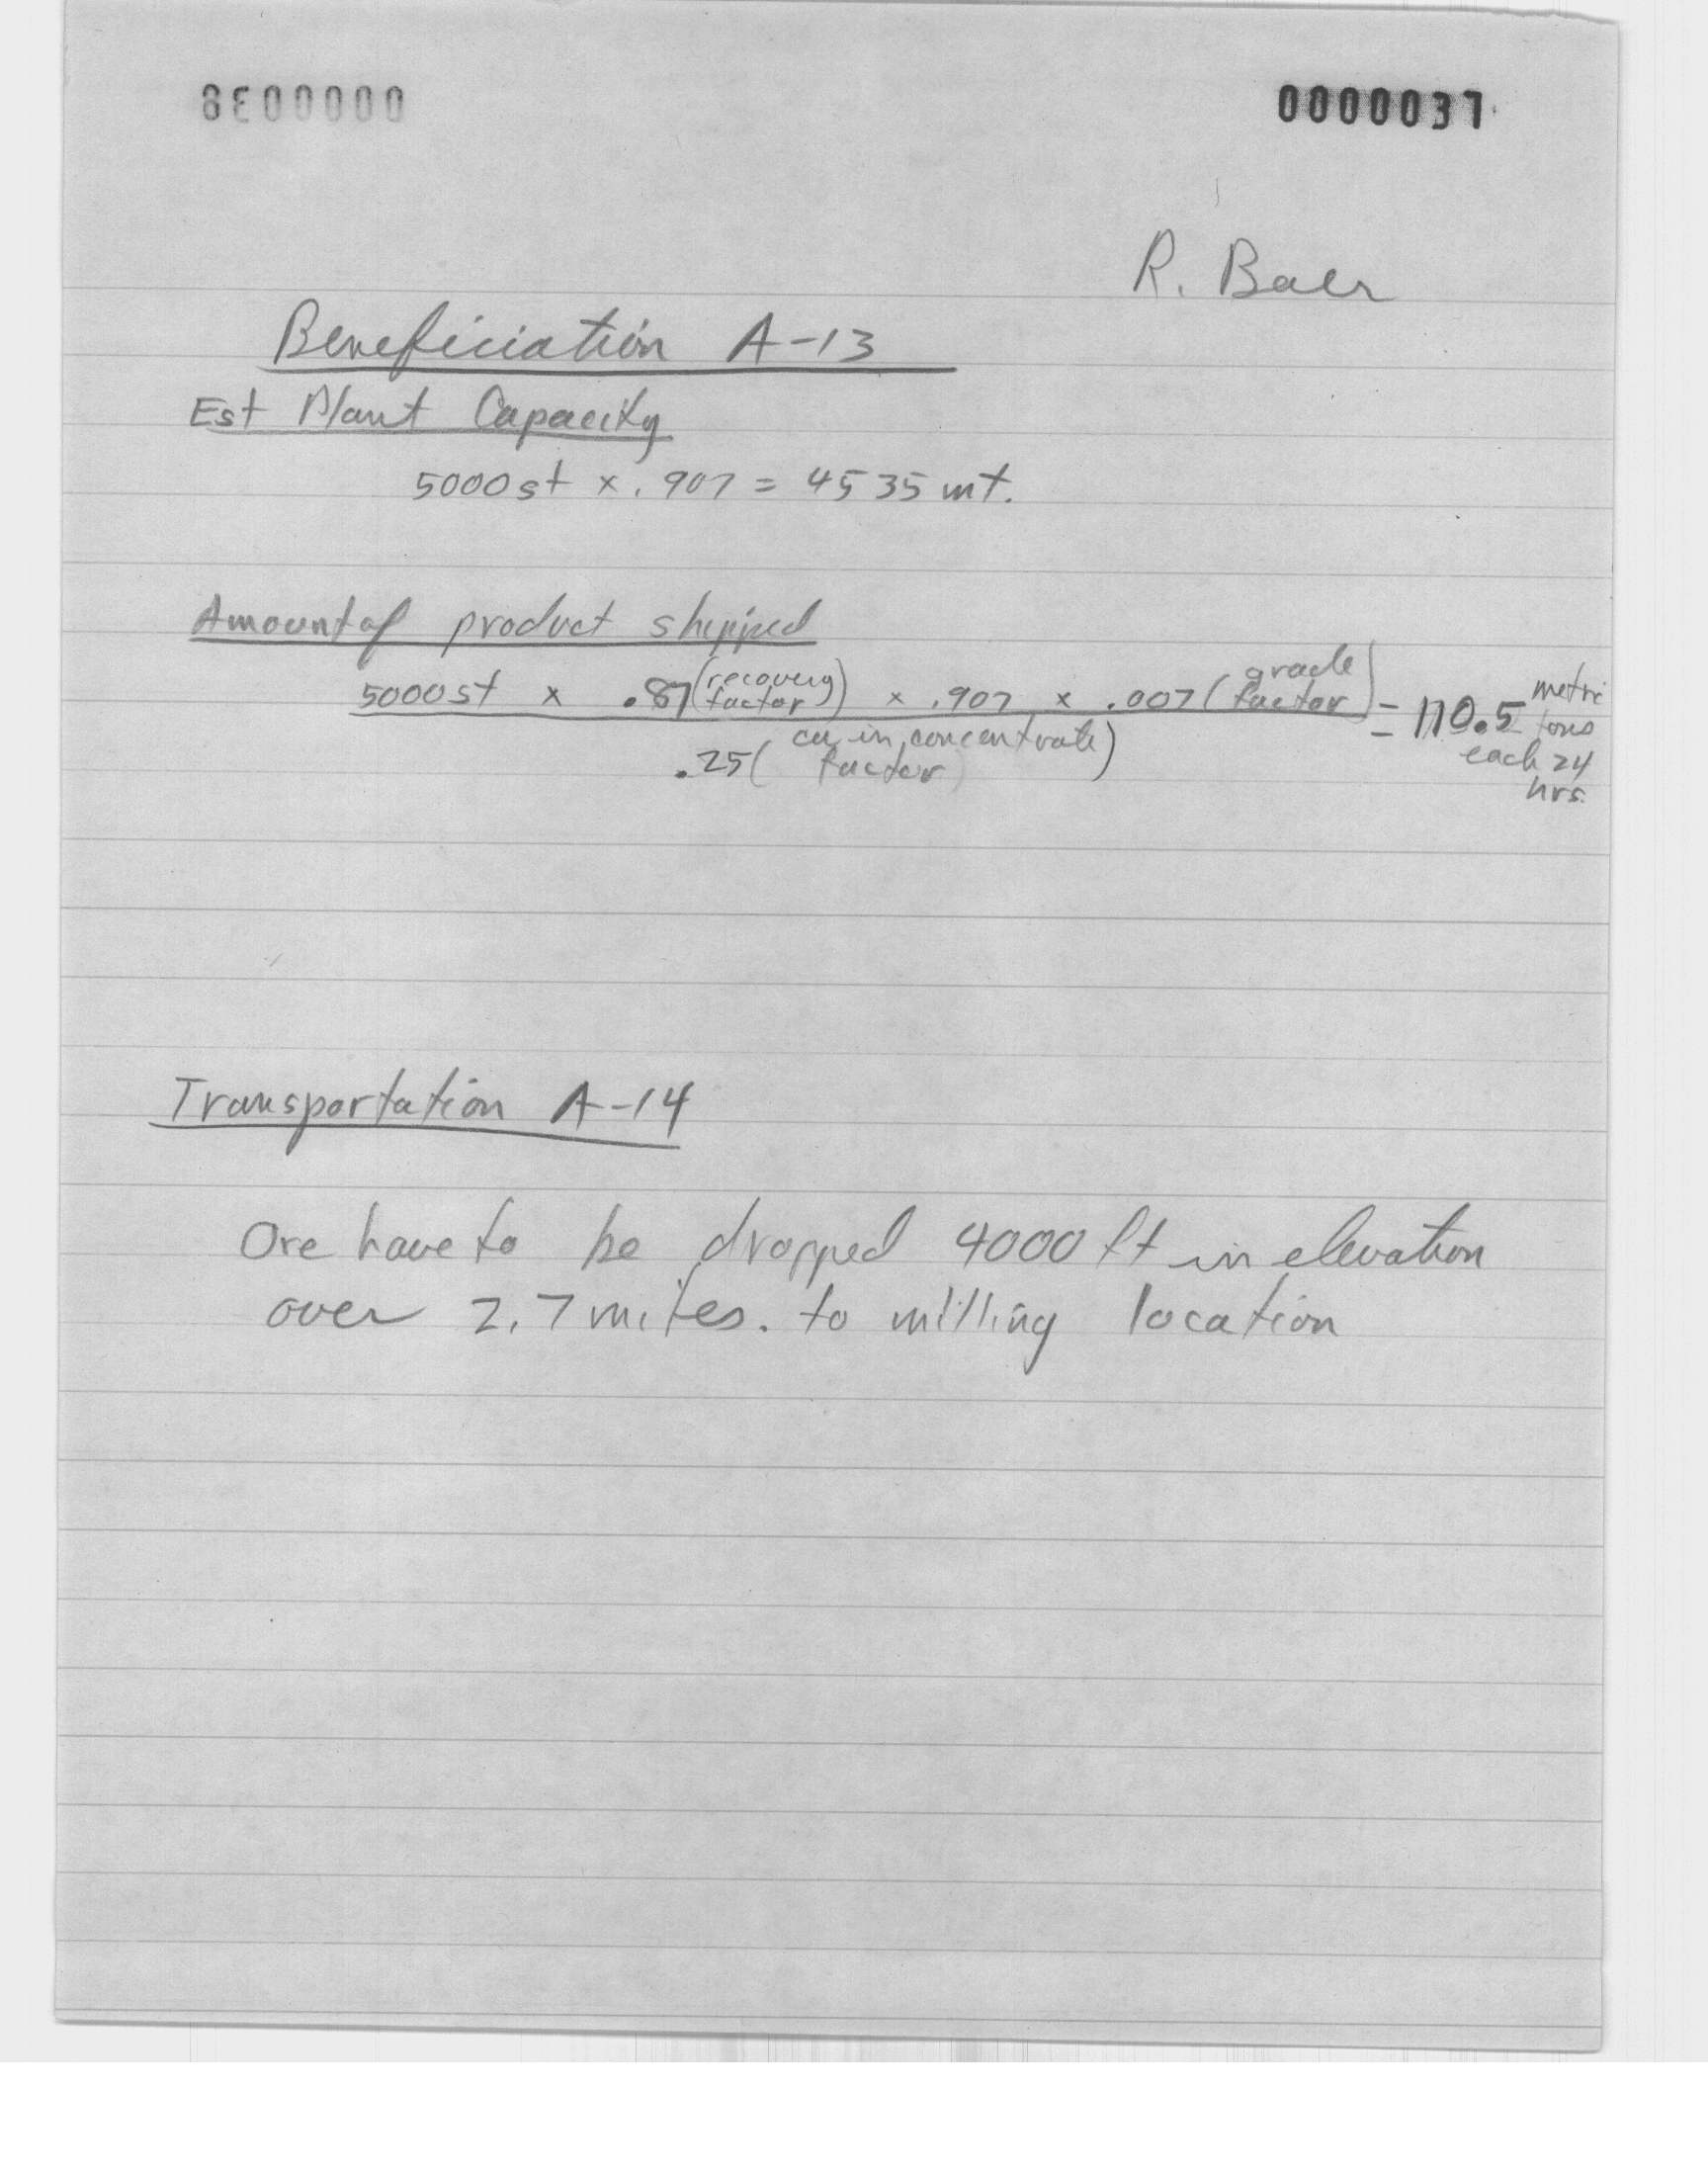 0000037
R. Baer
Beneficiation A-13
Est Plant Capacity
5000 st x .907 = 4535 mt.
Amount of product shipped
5000 st x .87 (recovery factor) x .907 x .007 (grade factor) = 110.5 metric tons each 24 hrs.
.25 (cu in concentrate factor)
Transportation A-14
Ore have to be dropped 4000 ft in elevation
over 2.7 miles. to milling location